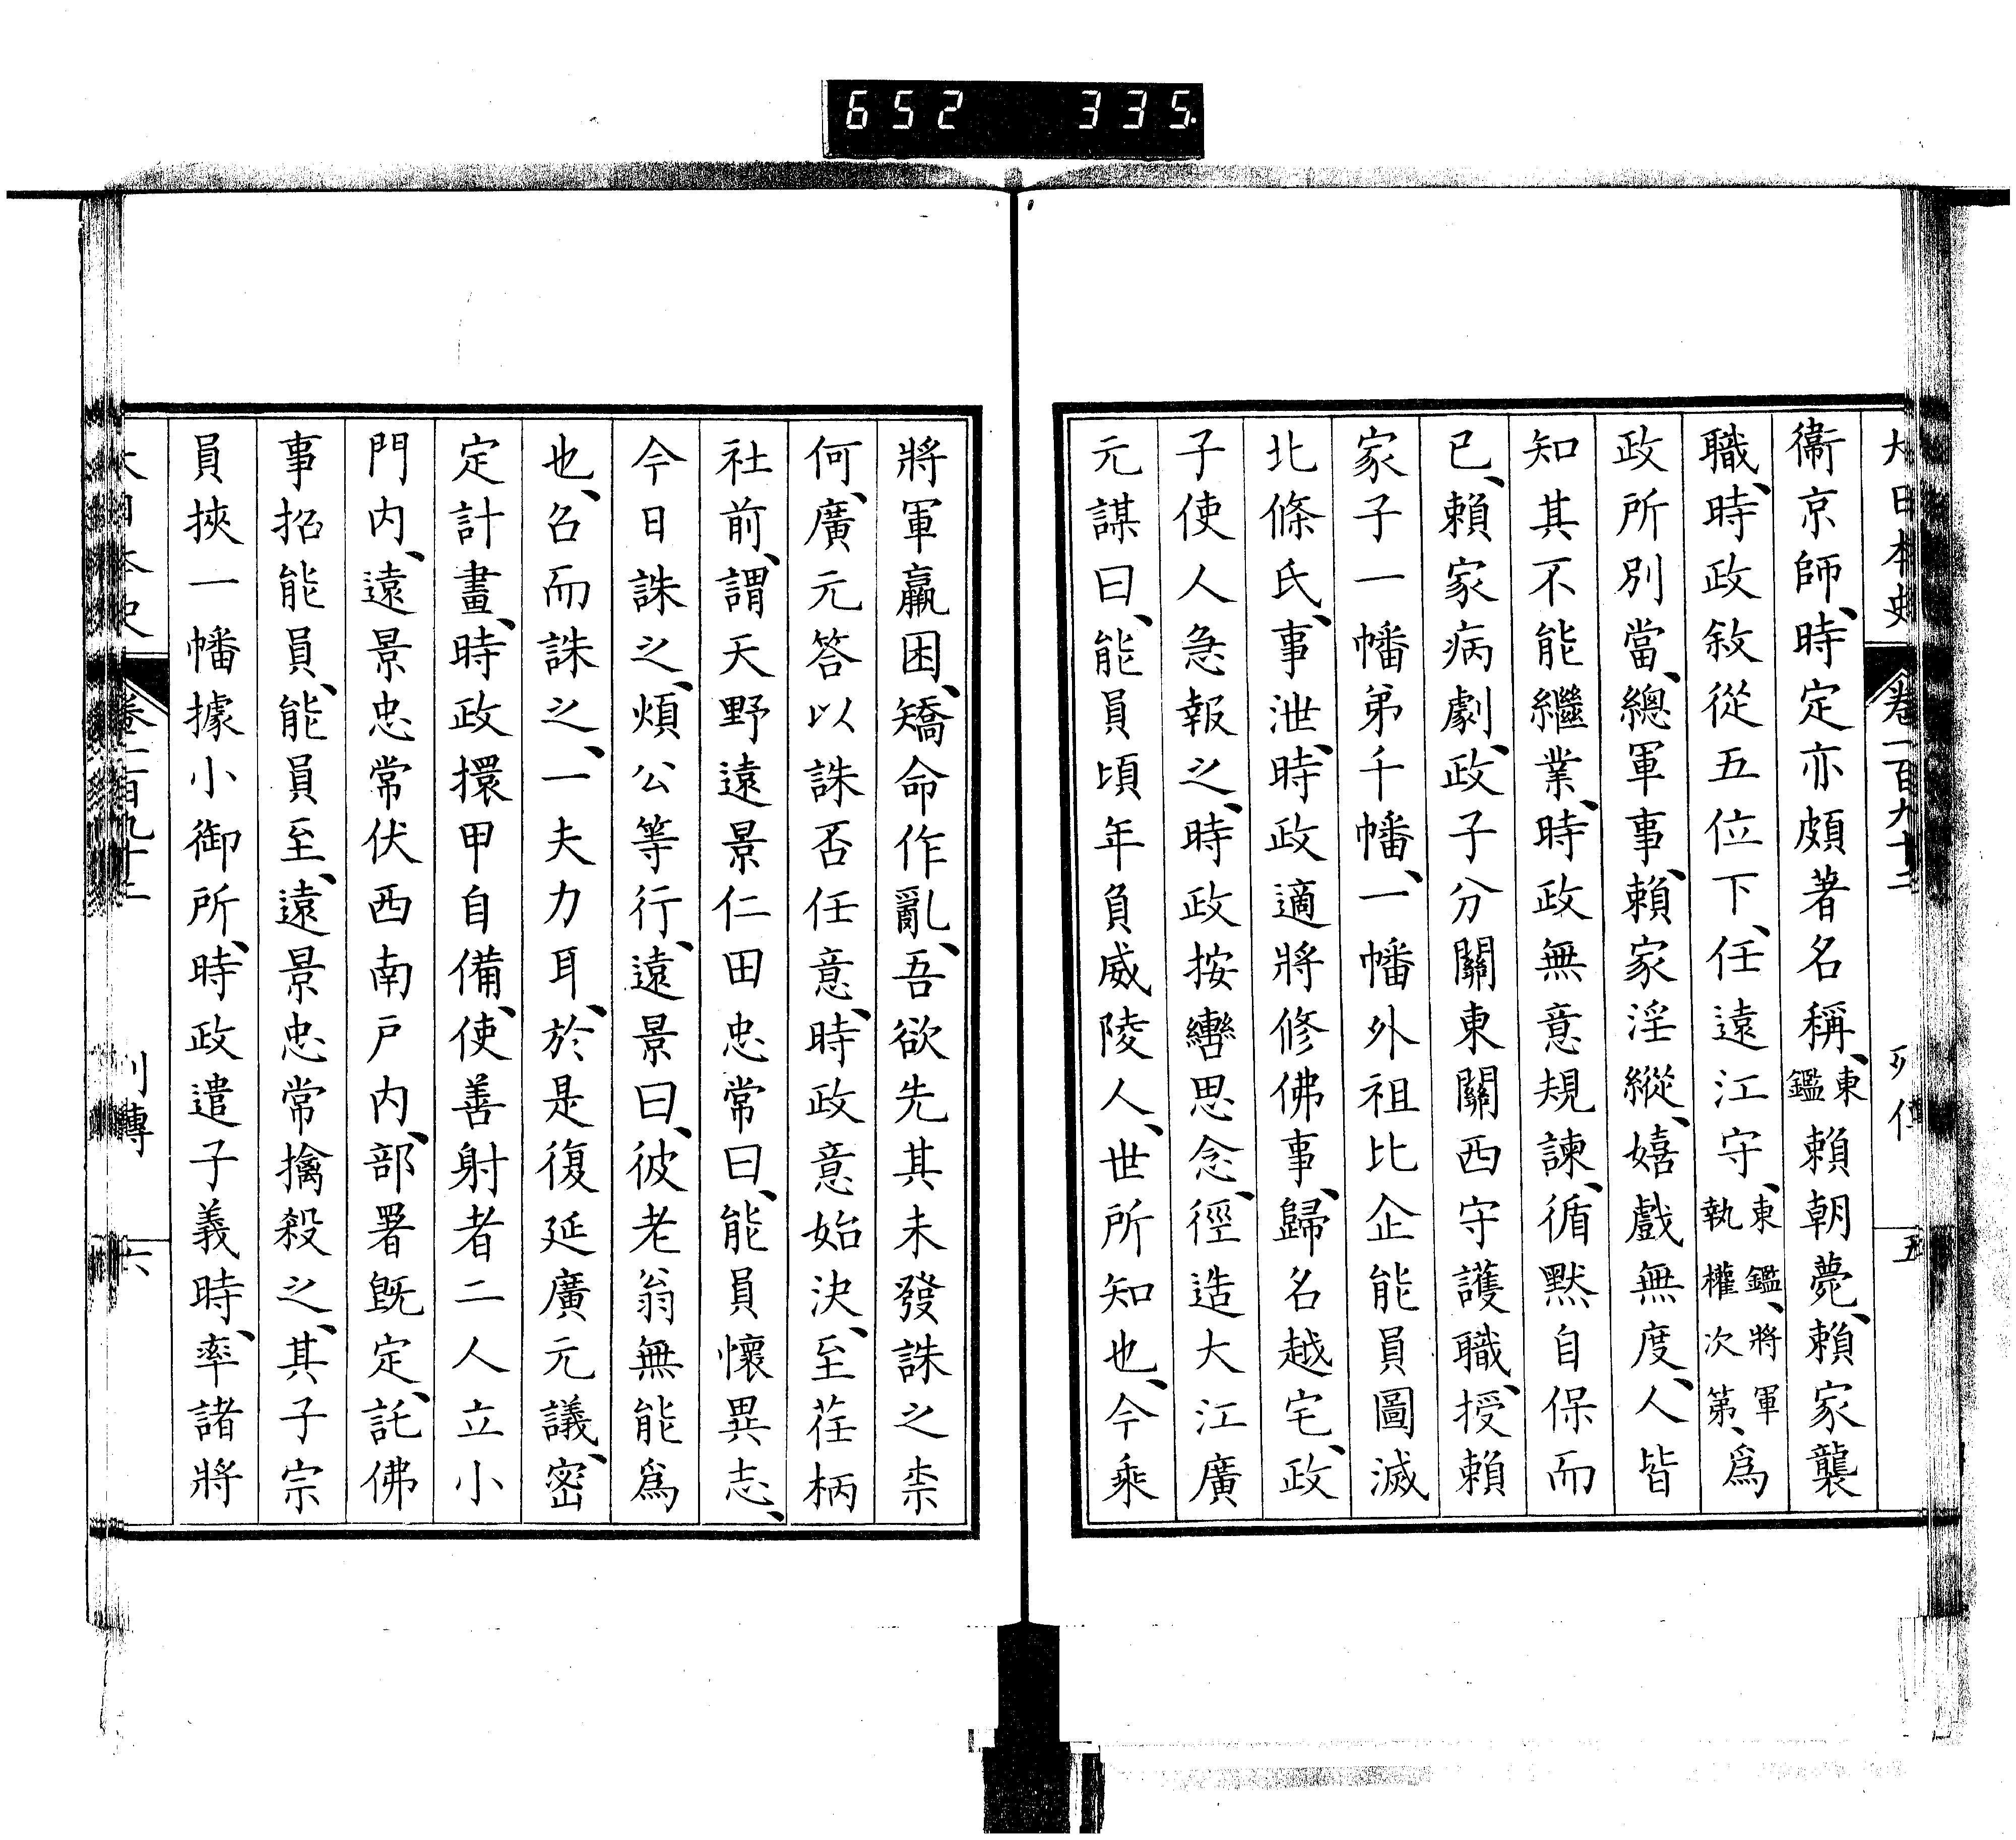 652 335.
大日本史 卷一百九十二 列傳 五
衞京師、時定亦頗著名稱、東鑑賴朝薨、賴家襲
職、時政敍從五位下、任遠江守、東鑑、將軍執權次第、爲
政所別當、總軍事、賴家淫縱、嬉戲無度、人皆
知其不能繼業、時政無意規諫、循默自保而
已、賴家病劇、政子分關東關西守護職、授賴
家子一幡弟千幡、一幡外祖比企能員圖滅
北條氏、事泄、時政適將修佛事、歸名越宅、政
子使人急報之、時政按轡思念、徑造大江廣
元謀曰、能員頃年負威陵人、世所知也、今乘
將軍羸困、矯命作亂、吾欲先其未發誅之柰
何、廣元答以誅否任意、時政意始決、至荏柄
社前、謂天野遠景仁田忠常曰、能員懷異志、
今日誅之、煩公等行、遠景曰、彼老翁無能爲
也、召而誅之、一夫力耳、於是復延廣元議、密
定計畫、時政擐甲自備、使善射者二人立小
門內、遠景忠常伏西南戶內、部署旣定、託佛
事招能員、能員至、遠景忠常擒殺之、其子宗
員挾一幡據小御所、時政遣子義時、率諸將
大日本史 卷一百九十二 列傳 六